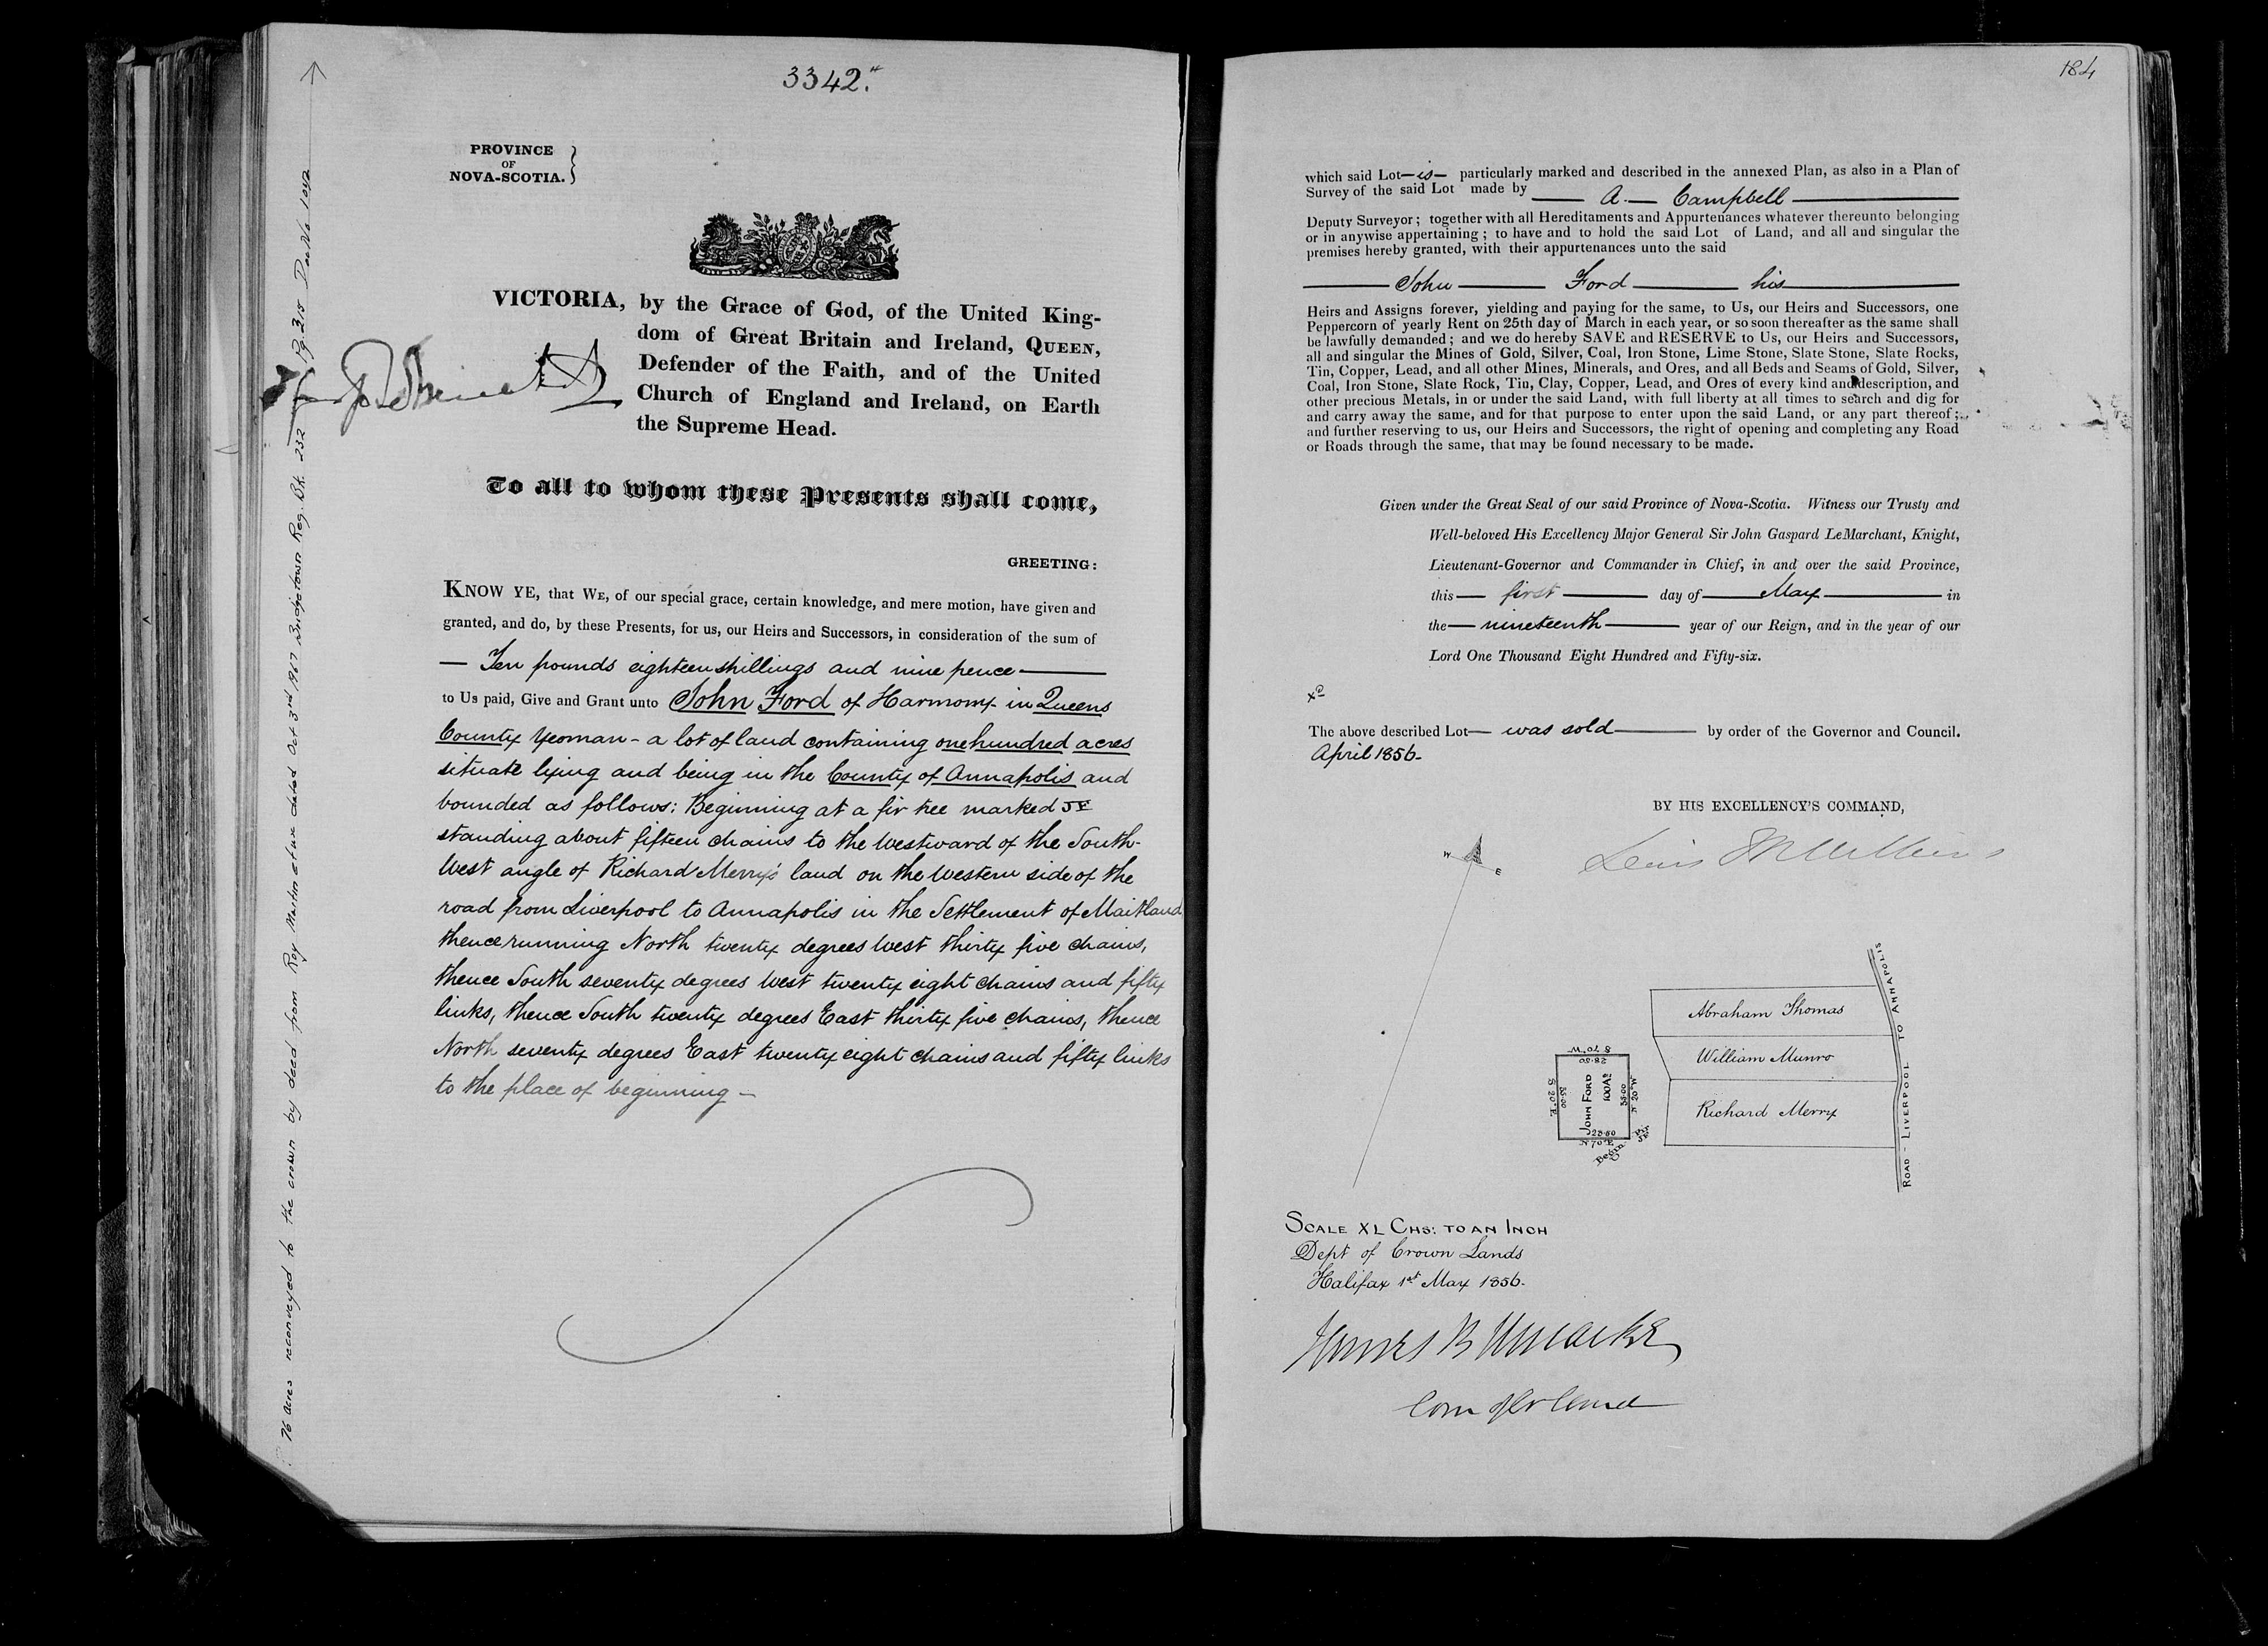 3342.
PROVINCE
OF
NOVA-SCOTIA.
VICTORIA, by the Grace of God, of the United King-
dom of Great Britain and Ireland, QUEEN,
Defender of the Faith, and of the United
Church of England and Ireland, on Earth
the Supreme Head.
To all to whom these Presents shall come,
GREETING:
KNOW YE, that WE, of our special grace, certain knowledge, and mere motion, have given and
granted, and do, by these Presents, for us, our Heirs and Successors, in consideration of the sum of
— Ten pounds eighteen shillings and nine pence —
to Us paid, Give and Grant unto John Ford of Harmony in Queens
County Yeoman - a lot of land containing one hundred acres
situate lying and being in the County of Annapolis and
bounded as follows: Beginning at a fir tree marked JF
standing about fifteen chains to the Westward of the South-
West angle of Richard Merry's land on the Western side of the
road from Liverpool to Annapolis in the Settlement of Maitland
thence running North twenty degrees West thirty five chains,
thence South seventy degrees West twenty eight chains and fifty
links, thence South twenty degrees East thirty five chains, thence
North seventy degrees East twenty eight chains and fifty links
to the place of beginning —
76 acres reconveyed to the crown by deed from Roy Martin et ux dated Oct 3rd 1967 Bridgetown Reg. Bk. 232 Pg. 315 Doc No 1042
184
which said Lot — is — particularly marked and described in the annexed Plan, as also in a Plan of
Survey of the said Lot made by — A. — Campbell —
Deputy Surveyor; together with all Hereditaments and Appurtenances whatever thereunto belonging
or in anywise appertaining; to have and to hold the said Lot of Land, and all and singular the
premises hereby granted, with their appurtenances unto the said
— John — Ford — his —
Heirs and Assigns forever, yielding and paying for the same, to Us, our Heirs and Successors, one
Peppercorn of yearly Rent on 25th day of March in each year, or so soon thereafter as the same shall
be lawfully demanded; and we do hereby SAVE and RESERVE to Us, our Heirs and Successors,
all and singular the Mines of Gold, Silver, Coal, Iron Stone, Lime Stone, Slate Stone, Slate Rocks,
Tin, Copper, Lead, and all other Mines, Minerals, and Ores, and all Beds and Seams of Gold, Silver,
Coal, Iron Stone, Slate Rock, Tin, Clay, Copper, Lead, and Ores of every kind and description, and
other precious Metals, in or under the said Land, with full liberty at all times to search and dig for
and carry away the same, and for that purpose to enter upon the said Land, or any part thereof;
and further reserving to us, our Heirs and Successors, the right of opening and completing any Road
or Roads through the same, that may be found necessary to be made.
Given under the Great Seal of our said Province of Nova-Scotia. Witness our Trusty and
Well-beloved His Excellency Major General Sir John Gaspard LeMarchant, Knight,
Lieutenant-Governor and Commander in Chief, in and over the said Province,
this — first — day of — May — in
the — nineteenth — year of our Reign, and in the year of our
Lord One Thousand Eight Hundred and Fifty-six.
The above described Lot — was sold — by order of the Governor and Council.
April 1856.
BY HIS EXCELLENCY'S COMMAND,
Lewis M Wilkins
W
E
Abraham Thomas
William Munro
Richard Merry
ROAD - LIVERPOOL TO ANNAPOLIS
S 70° W
28.50
S 20° E
35.00
JOHN FORD
100 As
35.00
N 20° W
28.50
N 70° E
Begin
SCALE XL CHS: TO AN INCH
Dept of Crown Lands
Halifax 1st May 1856.
James B Uniacke